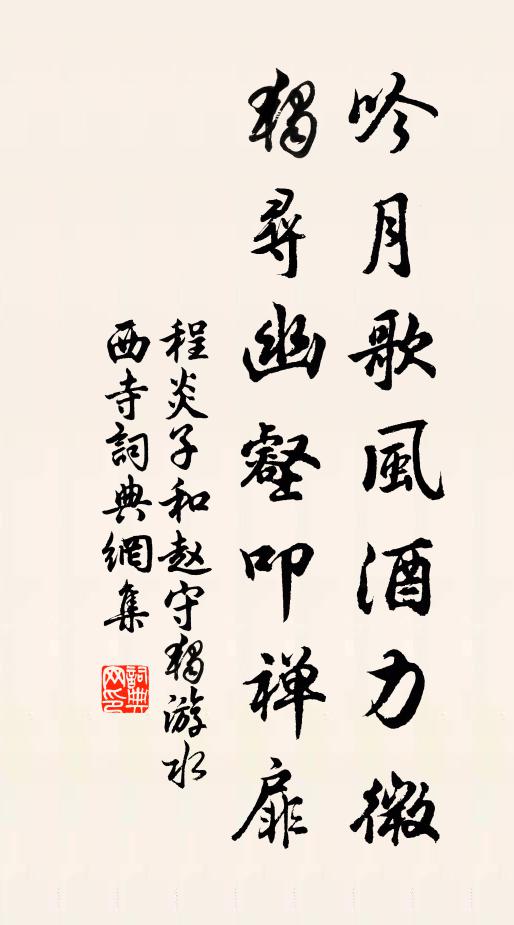 吟月歌風酒力微
獨尋幽壑叩禅扉
程炎子和赵守獨游水
西寺詞典網集
詞典网印